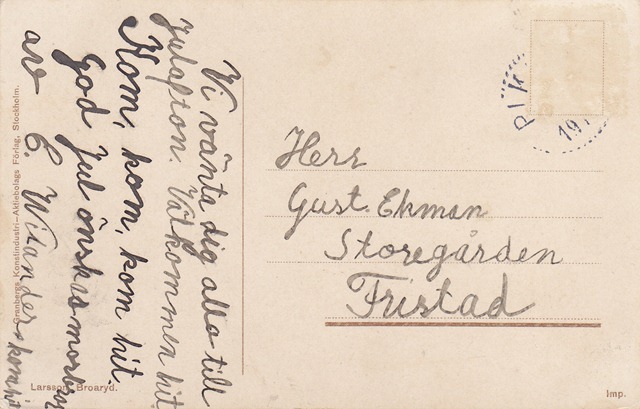 Vi vänta dig alla till
Julafton. Välkommen hit.
Kom, kom, kom hit.
God Jul önskas morbror
av E. Wilander. kom hit
Granbergs Konstindustri-Aktiebolags Förlag, Stockholm.
Larsson, Broaryd.
PIN
191
Herr
Gust. Ekman
Storegården
Fristad
Imp.